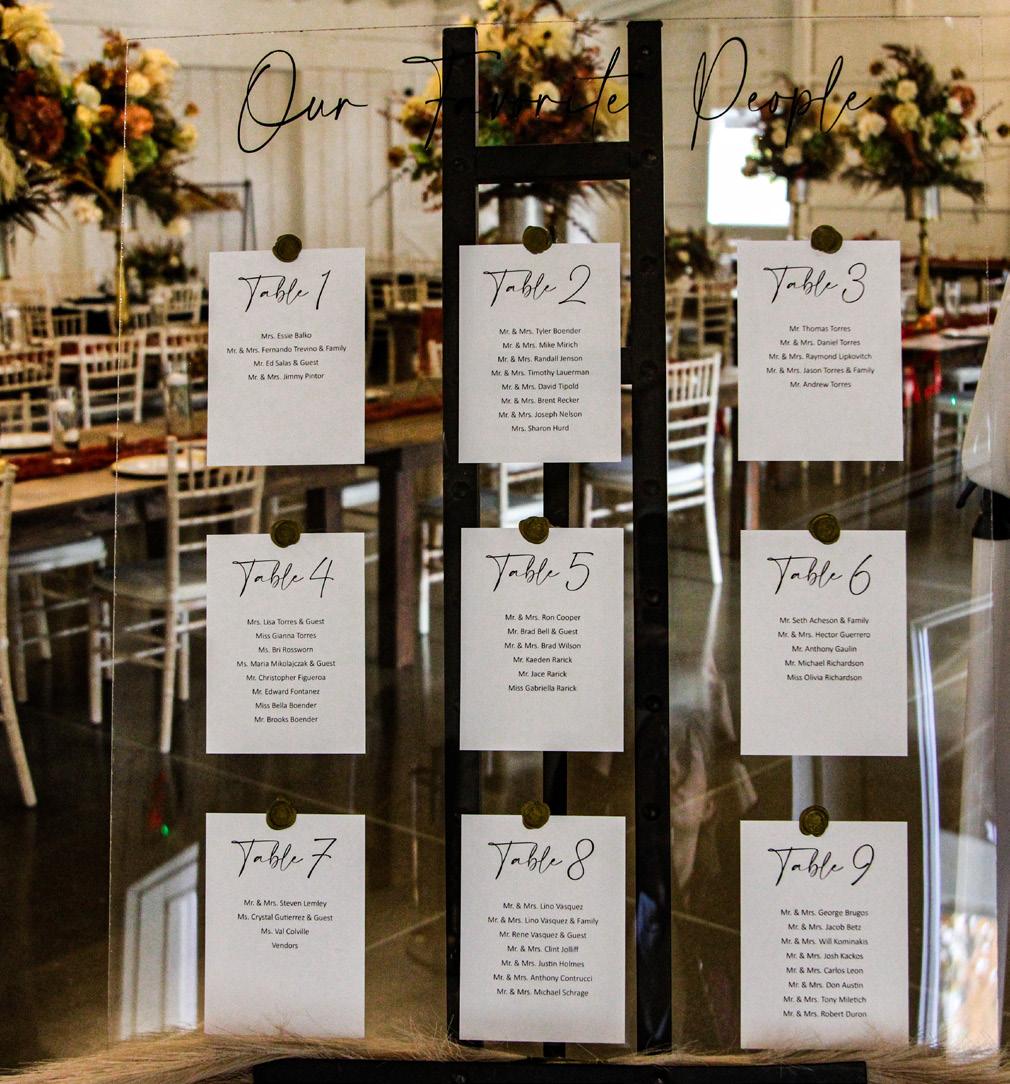 Our Favorite People
Table 1
Mrs. Essie Balko
Mr. & Mrs. Fernando Trevino & Family
Mr. Ed Salas & Guest
Mr. & Mrs. Jimmy Pintor
Table 2
Mr. & Mrs. Tyler Boender
Mr. & Mrs. Mike Mirich
Mr. & Mrs. Randall Jenson
Mr. & Mrs. Timothy Lauerman
Mr. & Mrs. David Tipold
Mr. & Mrs. Brent Recker
Mr. & Mrs. Joseph Nelson
Mrs. Sharon Hurd
Table 3
Mr. Thomas Torres
Mr. & Mrs. Daniel Torres
Mr. & Mrs. Raymond Lipkovitch
Mr. & Mrs. Jason Torres & Family
Mr. Andrew Torres
Table 4
Mrs. Lisa Torres & Guest
Miss Gianna Torres
Ms. Bri Rossworn
Ms. Maria Mikolajczak & Guest
Mr. Christopher Figueroa
Mr. Edward Fontanez
Miss Bella Boender
Mr. Brooks Boender
Table 5
Mr. & Mrs. Ron Cooper
Mr. Brad Bell & Guest
Mr. & Mrs. Brad Wilson
Mr. Kaeden Rarick
Mr. Jace Rarick
Miss Gabriella Rarick
Table 6
Mr. Seth Acheson & Family
Mr. & Mrs. Hector Guerrero
Mr. Anthony Gaulin
Mr. Michael Richardson
Miss Olivia Richardson
Table 7
Mr. & Mrs. Steven Lemley
Ms. Crystal Gutierrez & Guest
Ms. Val Colville
Vendors
Table 8
Mr. & Mrs. Lino Vasquez
Mr. & Mrs. Lino Vasquez & Family
Mr. Rene Vasquez & Guest
Mr. & Mrs. Clint Jolliff
Mr. & Mrs. Justin Holmes
Mr. & Mrs. Anthony Contrucci
Mr. & Mrs. Michael Schrage
Table 9
Mr. & Mrs. George Brugos
Mr. & Mrs. Jacob Betz
Mr. & Mrs. Will Kominakis
Mr. & Mrs. Josh Kackos
Mr. & Mrs. Carlos Leon
Mr. & Mrs. Don Austin
Mr. & Mrs. Tony Miletich
Mr. & Mrs. Robert Duron